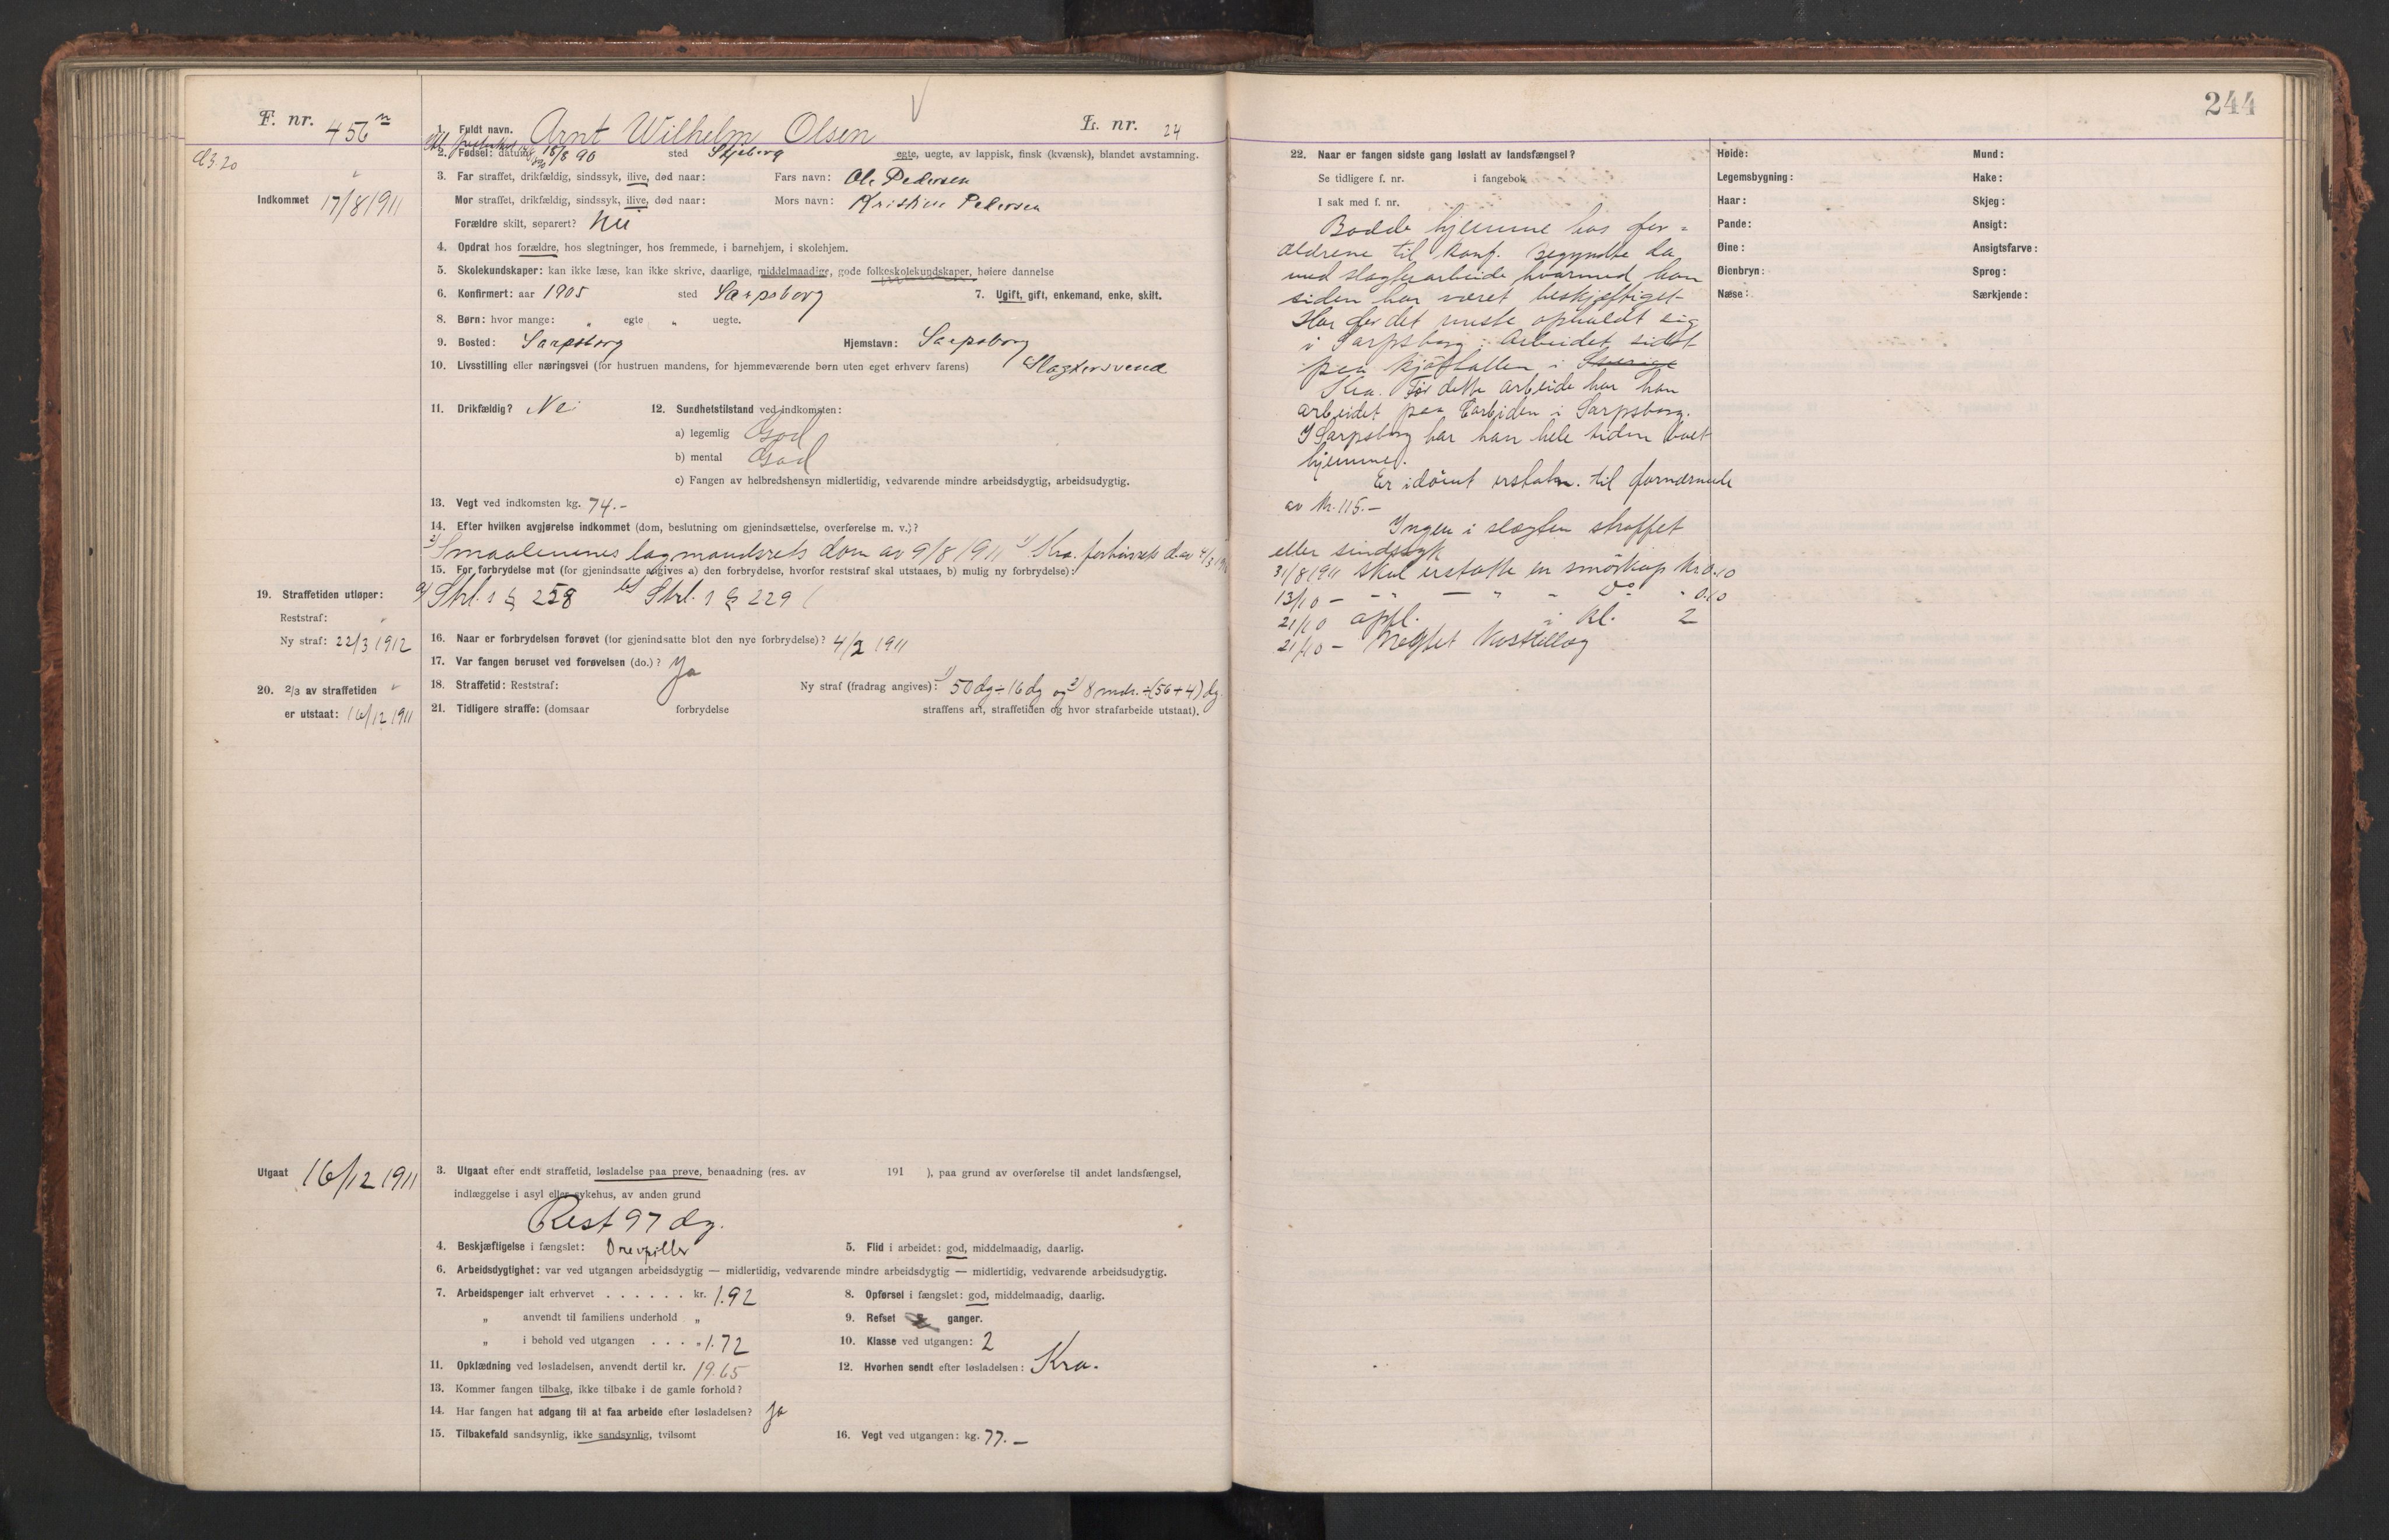 F. nr. 456
1. Fuldt navn. Arnt Wilhelm Olsen
L. nr. 24
d3.20
2. Fødsel: datum 18/8 90 sted Skjeberg egte, uegte, av lappisk, finsk (kvænsk), blandet avstamning.
3. Far straffet, drikfældig, sindssyk, ilive, død naar: Fars navn: Ole Pedersen
Indkommet 17/8 1911
Mor straffet, drikfældig, sindssyk, ilive, død naar: Mors navn: Kristine Pedersen
Forældre skilt, separert? Nei
4. Opdrat hos forældre, hos slegtninger, hos fremmede, i barnehjem, i skolehjem.
5. Skolekundskaper: kan ikke læse, kan ikke skrive, daarlige, middelmaadige, gode folkeskolekundskaper, høiere dannelse
6. Konfirmert: aar 1905 sted Sarpsborg 7. Ugift, gift, enkemand, enke, skilt.
8. Børn: hvor mange: " egte " uegte.
9. Bosted: Sarpsborg Hjemstavn: Sarpsborg
10. Livsstilling eller næringsvei (for hustruen mandens, for hjemmeværende børn uten eget erhverv farens) Slagtersvend
11. Drikfældig? Nei 12. Sundhetstilstand ved indkomsten:
a) legemlig God
b) mental God
c) Fangen av helbredshensyn midlertidig, vedvarende mindre arbeidsdygtig, arbeidsudygtig.
13. Vegt ved indkomsten kg. 74.-
14. Efter hvilken avgjørelse indkommet (dom, beslutning om gjenindsættelse, overførelse m. v.)?
2) Smaalenenes lagmandsrets dom av 9/8 1911 1) Kra. forhørsrets d. av 4/3 1911
15. For forbrydelse mot (for gjenindsatte angives a) den forbrydelse, hvorfor reststraf skal utstaaes, b) mulig ny forbrydelse):
19. Straffetiden utløper: a) Strl.s § 228 b) Strl.s § 229
Reststraf: "
Ny straf: 22/3 1912
16. Naar er forbrydelsen forøvet (for gjenindsatte blot den nye forbrydelse)? 4/2 1911
17. Var fangen beruset ved forøvelsen (do.)? Ja
20. 2/3 av straffetiden "
er utstaat: 16/12 1911
18. Straffetid: Reststraf: Ny straf (fradrag angives): 1) 50 dg ÷ 16 dg og 2) 8 mdr. ÷ (56 + 4) dg.
21. Tidligere straffe: (domsaar forbrydelse straffens art, straffetiden og hvor strafarbeide utstaat).
Utgaat 16/12 1911
3. Utgaat efter endt straffetid, løsladelse paa prøve, benaadning (res. av 191 ), paa grund av overførelse til andet landsfængsel,
indlæggelse i asyl eller sykehus, av anden grund
Rest 97 dg.
4. Beskjæftigelse i fængslet: Drevpiller 5. Flid i arbeidet: god, middelmaadig, daarlig.
6. Arbeidsdygtighet: var ved utgangen arbeidsdygtig — midlertidig, vedvarende mindre arbeidsdygtig — midlertidig, vedvarende arbeidsudygtig.
7. Arbeidspenger ialt erhvervet . . . . . . kr. 1.92 8. Opførsel i fængslet: god, middelmaadig, daarlig.
" anvendt til familiens underhold " 9. Refset ganger.
" i behold ved utgangen . . . . " 1.72 10. Klasse ved utgangen: 2
11. Opklædning ved løsladelsen, anvendt dertil kr. 19.65 12. Hvorhen sendt efter løsladelsen: Kra.
13. Kommer fangen tilbake, ikke tilbake i de gamle forhold?
14. Har fangen hat adgang til at faa arbeide efter løsladelsen? Ja
15. Tilbakefald sandsynlig, ikke sandsynlig, tvilsomt 16. Vegt ved utgangen: kg. 77.-
244
22. Naar er fangen sidste gang løslatt av landsfængsel?
Se tidligere f. nr. i fangebok
I sak med f. nr.
Bodde hjemme hos for=
ældrene til konf. Begyndte da
med slagterarbeide, hvormed han
siden har været beskjæftiget
Har for det meste opholdt sig
i Sarpsborg; Arbeidet sidst
paa kjøthallen i Sverige
Kra. Før dette arbeide har han
arbeidet paa Carbiden i Sarpsborg.
I Sarpsborg har han hele tiden boet
hjemme.
Er idømt erstatn. til fornærmede
av Kr. 115.-
Ingen i slægten straffet
eller sindssyk
31/8 1911 skal erstatte en smørkop Kr. 0.10
13/10 - - " - " " Do " 0.10
21/10 opfl. i kl. 2
21/10 - Negtet kosttillæg
Høide:
Legemsbygning:
Haar:
Pande:
Øine:
Øienbryn:
Næse:
Mund:
Hake:
Skjeg:
Ansigt:
Ansigtsfarve:
Sprog:
Særkjende: